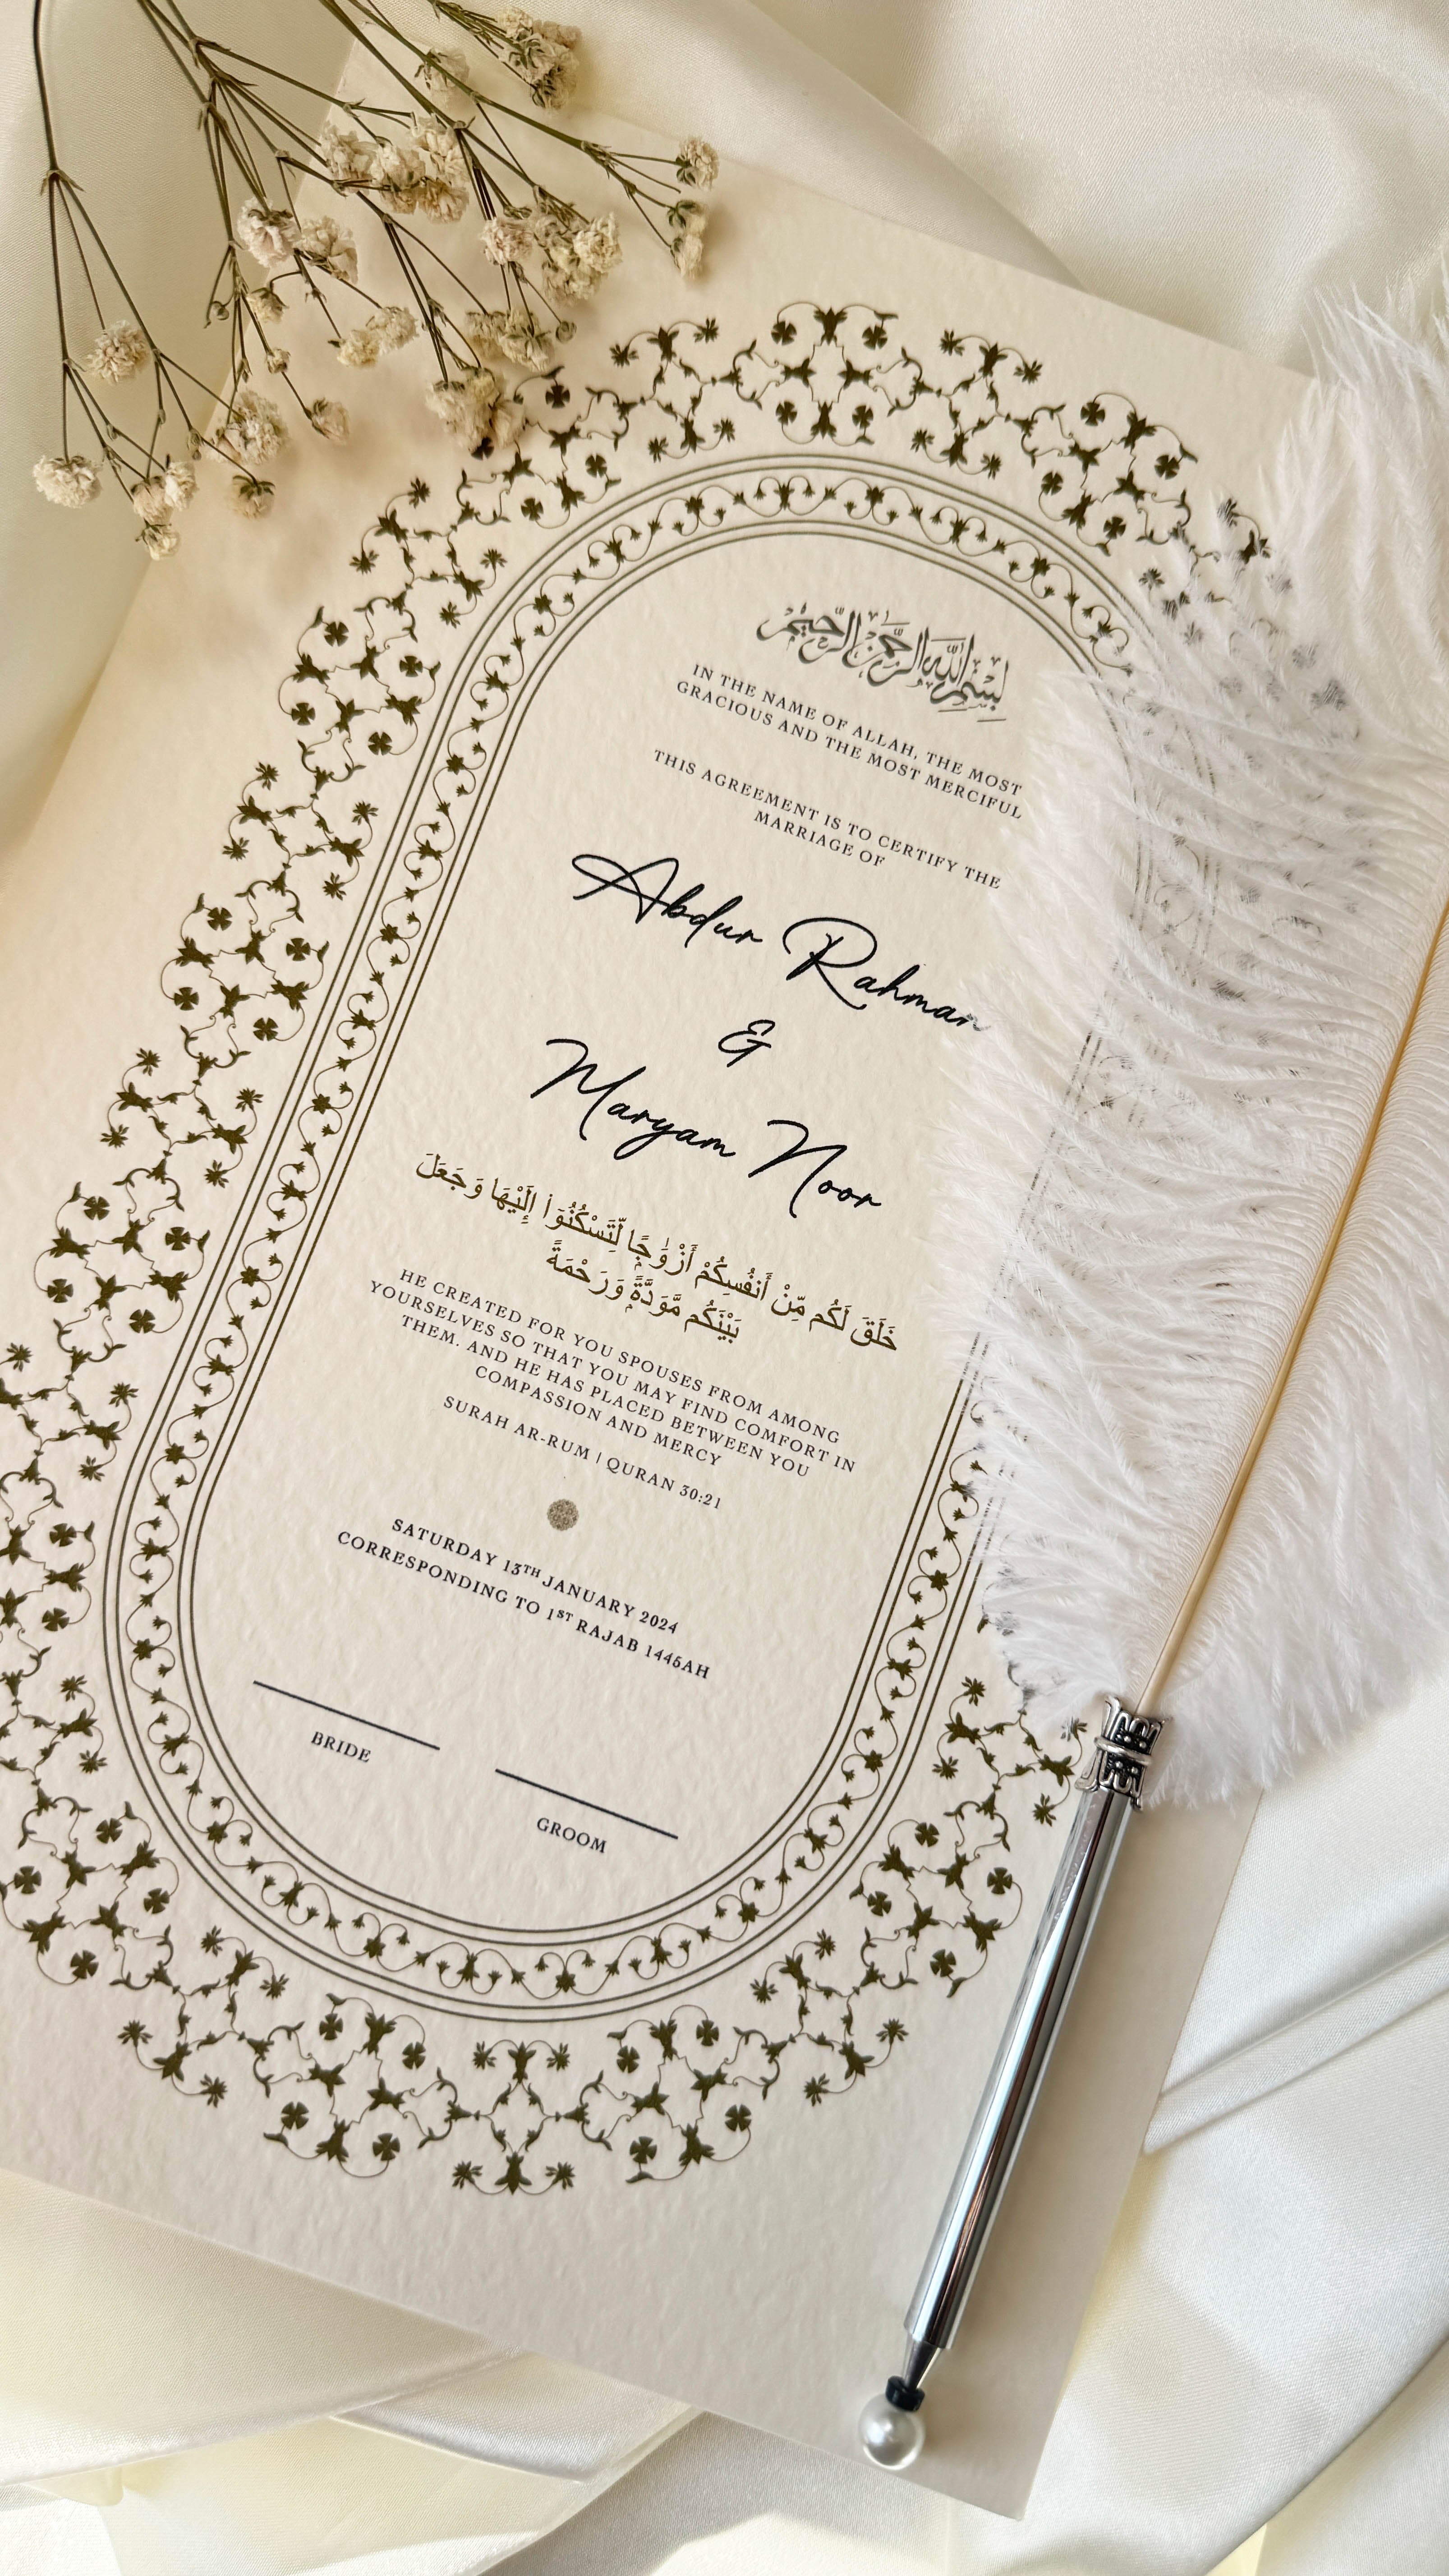 بِسْمِ اللَّهِ الرَّحْمَنِ الرَّحِيمِ
IN THE NAME OF ALLAH, THE MOST
GRACIOUS AND THE MOST MERCIFUL
THIS AGREEMENT IS TO CERTIFY THE
MARRIAGE OF
Abdur Rahman
&
Maryam Noor
خَلَقَ لَكُم مِّنْ أَنفُسِكُمْ أَزْوَٰجًا لِّتَسْكُنُوٓا۟ إِلَيْهَا وَجَعَلَ
بَيْنَكُم مَّوَدَّةً وَرَحْمَةً
HE CREATED FOR YOU SPOUSES FROM AMONG
YOURSELVES SO THAT YOU MAY FIND COMFORT IN
THEM. AND HE HAS PLACED BETWEEN YOU
COMPASSION AND MERCY
SURAH AR-RUM | QURAN 30:21
SATURDAY 13TH JANUARY 2024
CORRESPONDING TO 1ST RAJAB 1445AH
BRIDE
GROOM